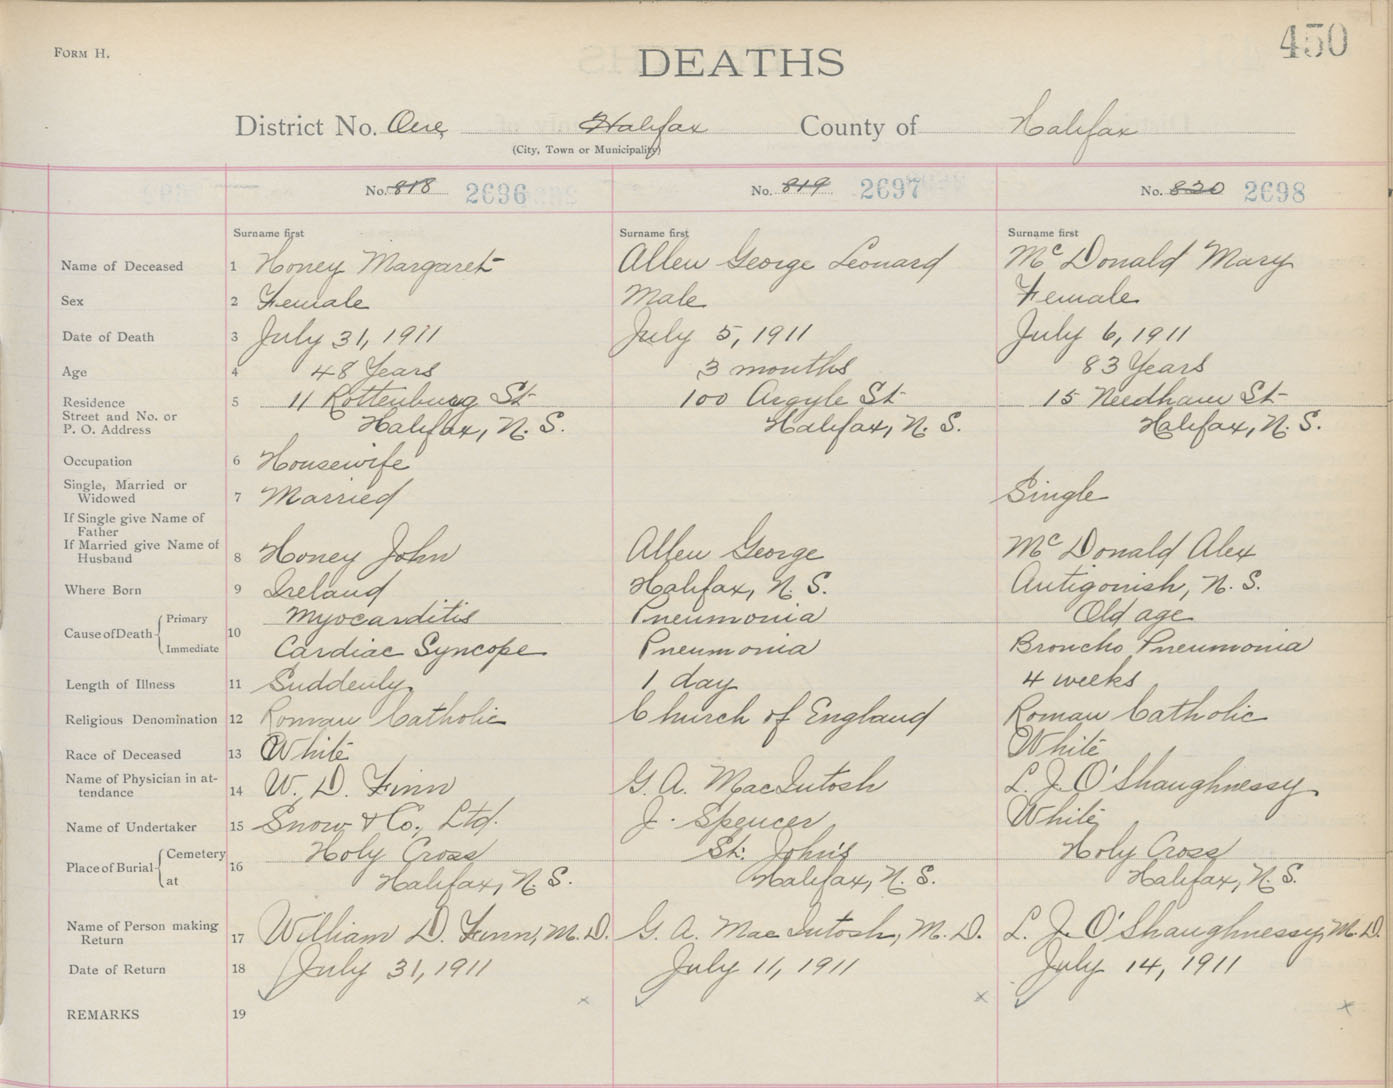 FORM H.
450
DEATHS
District No. One Halifax County of Halifax
(City, Town or Municipality)
No. 818 2696 No. 819 2697 No. 820 2698
Surname first Surname first Surname first
Name of Deceased 1 Honey Margaret Allen George Leonard McDonald Mary
Sex 2 Female Male Female
Date of Death 3 July 31, 1911 July 5, 1911 July 6, 1911
Age 4 48 Years 3 months 83 Years
Residence 5 11 Rottenburg St 100 Argyle St 15 Needham St
Street and No. or
P. O. Address Halifax, N. S. Halifax, N. S. Halifax, N. S.
Occupation 6 Housewife
Single, Married or
Widowed 7 Married Single
If Single give Name of
Father
If Married give Name of
Husband 8 Honey John Allen George McDonald Alex
Where Born 9 Ireland Halifax, N. S. Antigonish, N. S.
Cause of Death Primary Myocarditis Pneumonia Old age
10
Immediate Cardiac Syncope Pneumonia Broncho Pneumonia
Length of Illness 11 Suddenly 1 day 4 weeks
Religious Denomination 12 Roman Catholic Church of England Roman Catholic
Race of Deceased 13 White White
Name of Physician in at-
tendance 14 W. D. Finn G. A. MacIntosh L. J. O'Shaughnessy
Name of Undertaker 15 Snow & Co., Ltd. J. Spencer White
Place of Burial Cemetery Holy Cross St. John's Holy Cross
16
at Halifax, N. S. Halifax, N. S. Halifax, N. S.
Name of Person making
Return 17 William D. Finn, M. D. G. A. MacIntosh, M. D. L. J. O'Shaughnessy, M. D.
Date of Return 18 July 31, 1911 July 11, 1911 July 14, 1911
REMARKS 19